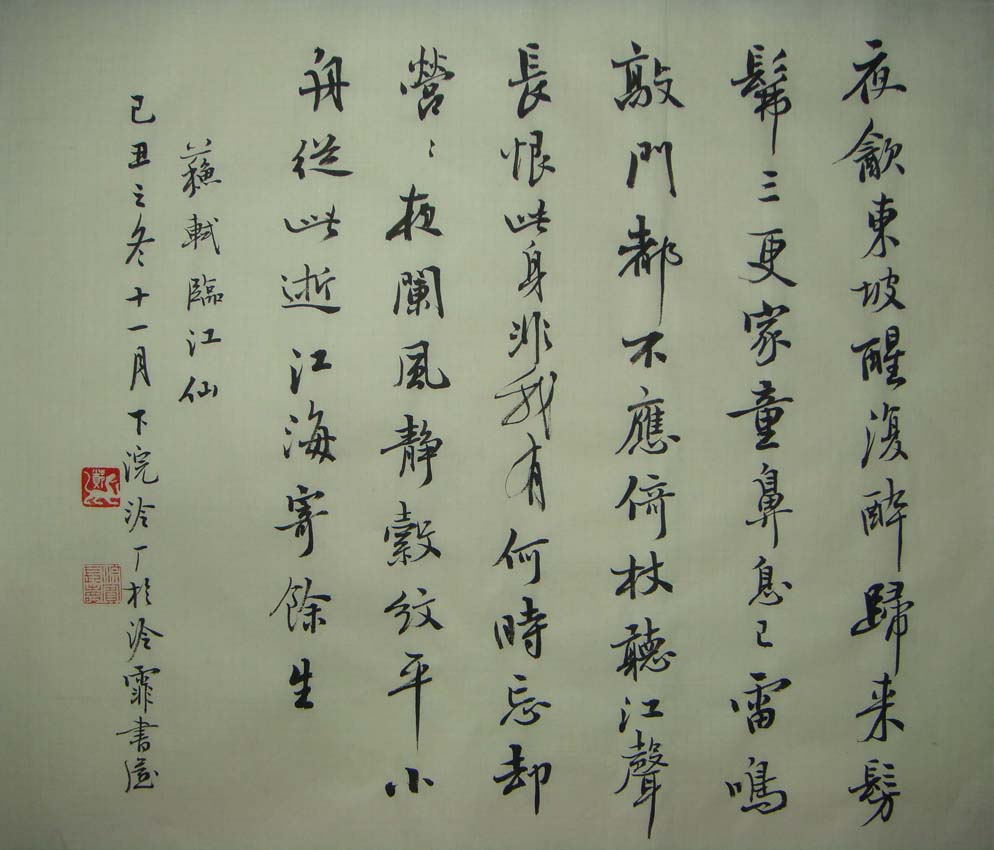 夜歙東坡醒復醉歸来髣
髴三更家童鼻息已雷鳴
敲門都不應倚杖聽江聲
長恨此身非我有何時忘却
營〻夜闌風静縠紋平小
舟從此逝江海寄餘生
蘇軾臨江仙
己丑之冬十一月下浣泠丁於泠霏書屋